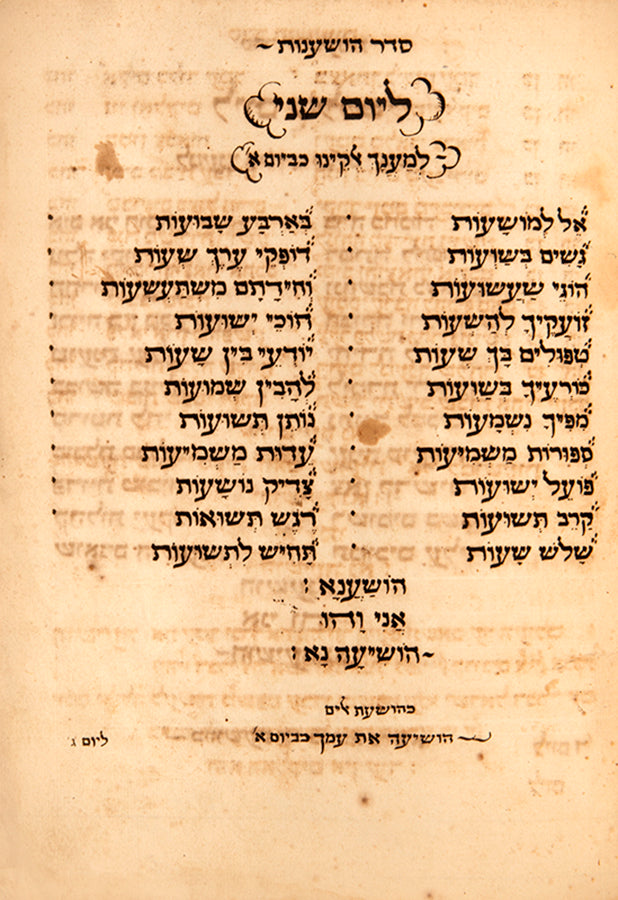 סדר הושענות
ליום שני
לְמַעֲנָךְ ﭏקינו כביום א'
אֵל לְמוֹשָׁעוֹת · בְּאַרְבַּע שְׁבוּעוֹת ·
גָּשִׁים בְּשַׁוְעוֹת · דּוֹפְקֵי עֶרֶךְ שׁוּעוֹת ·
הוֹגֵי שַׁעֲשׁוּעוֹת · וְחִידָתָם מִשְׁתַּעְשְׁעוֹת ·
זוֹעֲקֶיךָ לְהַשְׁעוֹת · חוֹכֵי יְשׁוּעוֹת ·
טְפוּלִים בָּךְ שְׁעוֹת · יוֹדְעֵי בִּין שָׁעוֹת ·
כּוֹרְעֶיךָ בְּשַׁוְעוֹת · לְהָבִין שְׁמוּעוֹת ·
מִפִּיךָ נִשְׁמָעוֹת · נוֹתֵן תְּשׁוּעוֹת ·
סְפוּרוֹת מַשְׁמִיעוֹת · עֵדוּת מַשְׁמִיעוֹת ·
פּוֹעֵל יְשׁוּעוֹת · צַדִּיק נוֹשָׁעוֹת ·
קִרְיַת תְּשׁוּעוֹת · רֶגֶשׁ תְּשׁוּאוֹת ·
שָׁלֹשׁ שָׁעוֹת · תָּחִישׁ לִתְשׁוּעוֹת ·
הוֹשַׁעֲנָא :
אֲנִי וָהוּ
הוֹשִׁיעָה נָא :
כהושעת ﭏים
הושיעה את עמך כביום א'
ליום ג'